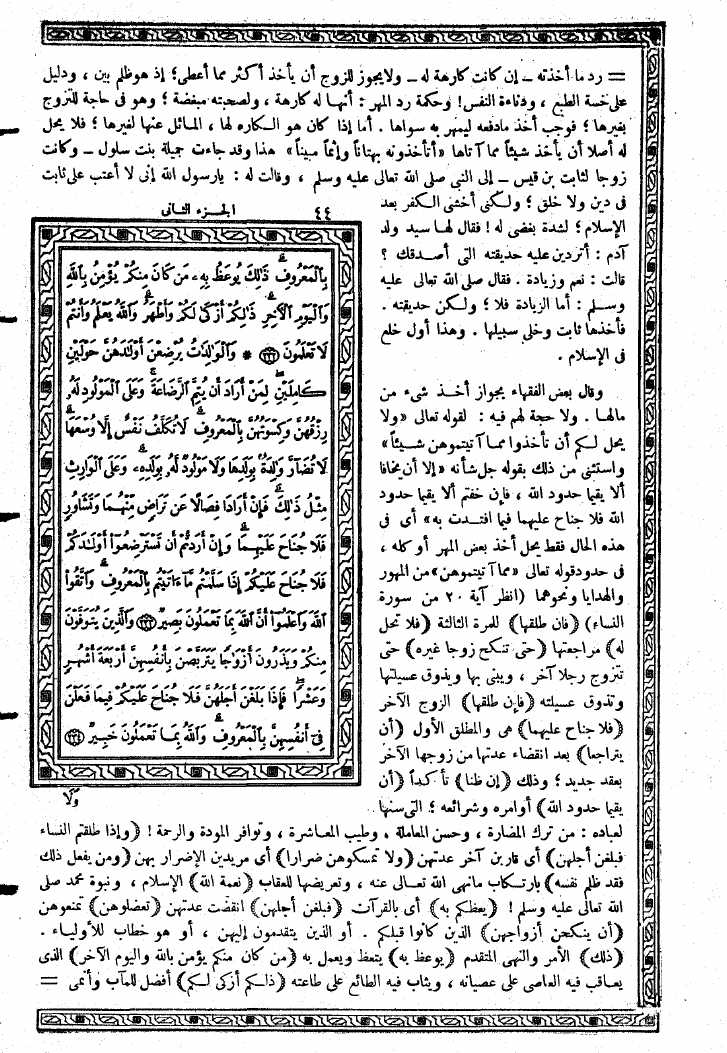 = رد ما أخذته ــ إن كانت كارهة له ــ ولا يجوز للزوج أن يأخذ أكثر مما أعطى؛ إذ هو ظلم بين ، ودليل
على خسة الطبع ، ودناءة النفس! وحكمة رد المهر: أنها له كارهة ، ولصحبته مبغضة؛ وهو فى حاجة للتزوج
بغيرها؛ فوجب أخذ مادفعه ليمهر به سواها . أما إذا كان هو الكاره لها ، المائل عنها لغيرها؛ فلا يحل
له أصلا أن يأخذ شيئاً مما آتاها «أتأخذونه بهتاناً وإثماً مبيناً» هذا وقد جاءت جميلة بنت سلول ــ وكانت
زوجا لثابت بن قيس ــ إلى النبى صلى الله تعالى عليه وسلم ، وقالت له : يارسول الله إنى لا أعتب على ثابت
فى دين ولا خلق؛ ولكنى أخشى الكفر بعد
الإسلام؛ لشدة بغضى له! فقال لها سيد ولد
آدم : أتردين عليه حديقته التى أصدقك ؟
قالت : نعم وزيادة . فقال صلى الله تعالى عليه
وسلم : أما الزيادة فلا؛ ولكن حديقته .
فأخذها ثابت وخلى سبيلها . وهذا أول خلع
فى الإسلام .
وقال بعض الفقهاء بجواز أخذ شىء من
مالها . ولا حجة لهم فيه : لقوله تعالى «ولا
يحل لكم أن تأخذوا مما آتيتموهن شيئاً»
واستثنى من ذلك بقوله جل شأنه «إلا أن يخافا
ألا يقيما حدود الله ، فإن خفتم ألا يقيما حدود
الله فلا جناح عليهما فيما افتدت به» أى فى
هذه الحال فقط يحل أخذ بعض المهر أو كله ،
فى حدود قوله تعالى «مما آتيتموهن» من المهور
والهدايا ونحوهما (انظر آية ٢٠ من سورة
النساء) (فان طلقها) للمرة الثالثة (فلا تحل
له) مراجعتها (حتى تنكح زوجا غيره) حتى
تتزوج رجلا آخر ، ويبنى بها ويذوق عسيلتها
وتذوق عسيلته (فإن طلقها) الزوج الآخر
(فلا جناح عليهما) هى والمطلق الأول (أن
يتراجعا) بعد انقضاء عدتها من زوجها الآخر
بعقد جديد؛ وذلك (إن ظنا) تأكداً (أن
يقيما حدود الله) أوامره وشرائعه؛ التى سنها
الجزء الثانى
٤٤
بِالْمَعْرُوفِ ذَٰلِكَ يُوعَظُ بِهِ مَن كَانَ مِنكُمْ يُؤْمِنُ بِاللَّهِ
وَالْيَوْمِ الْآخِرِ ذَٰلِكُمْ أَزْكَىٰ لَكُمْ وَأَطْهَرُ وَاللَّهُ يَعْلَمُ وَأَنتُمْ
لَا تَعْلَمُونَ ٢٣٢ * وَالْوَالِدَاتُ يُرْضِعْنَ أَوْلَادَهُنَّ حَوْلَيْنِ
كَامِلَيْنِ لِمَنْ أَرَادَ أَن يُتِمَّ الرَّضَاعَةَ وَعَلَى الْمَوْلُودِ لَهُ
رِزْقُهُنَّ وَكِسْوَتُهُنَّ بِالْمَعْرُوفِ لَا تُكَلَّفُ نَفْسٌ إِلَّا وُسْعَهَا
لَا تُضَارَّ وَالِدَةٌ بِوَلَدِهَا وَلَا مَوْلُودٌ لَّهُ بِوَلَدِهِ وَعَلَى الْوَارِثِ
مِثْلُ ذَٰلِكَ فَإِنْ أَرَادَا فِصَالًا عَن تَرَاضٍ مِّنْهُمَا وَتَشَاوُرٍ
فَلَا جُنَاحَ عَلَيْهِمَا وَإِنْ أَرَدتُّمْ أَن تَسْتَرْضِعُوا أَوْلَادَكُمْ
فَلَا جُنَاحَ عَلَيْكُمْ إِذَا سَلَّمْتُم مَّا آتَيْتُم بِالْمَعْرُوفِ وَاتَّقُوا
اللَّهَ وَاعْلَمُوا أَنَّ اللَّهَ بِمَا تَعْمَلُونَ بَصِيرٌ ٢٣٣ وَالَّذِينَ يُتَوَفَّوْنَ
مِنكُمْ وَيَذَرُونَ أَزْوَاجًا يَتَرَبَّصْنَ بِأَنفُسِهِنَّ أَرْبَعَةَ أَشْهُرٍ
وَعَشْرًا فَإِذَا بَلَغْنَ أَجَلَهُنَّ فَلَا جُنَاحَ عَلَيْكُمْ فِيمَا فَعَلْنَ
فِي أَنفُسِهِنَّ بِالْمَعْرُوفِ وَاللَّهُ بِمَا تَعْمَلُونَ خَبِيرٌ ٢٣٤
ولا
لعباده : من ترك المضارة ، وحسن المعاملة ، وطيب المعاشرة ، وتوافر المودة والرحمة ! (وإذا طلقتم النساء
فبلغن أجلهن) أى قاربن آخر عدتهن (ولا تمسكوهن ضرارا) أى مريدين الإضرار بهن (ومن يفعل ذلك
فقد ظلم نفسه) بارتكاب مانهى الله تعالى عنه ، وتعريضها للعقاب (نعمة الله) الإسلام ، ونبوة محمد صلى
الله تعالى عليه وسلم ! (يعظكم به) أى بالقرآن (فبلغن أجلهن) انقضت عدتهن (تعضلوهن) تمنعوهن
(أن ينكحن أزواجهن) الذين كانوا قبلكم . أو الذين يتقدمون إليهن ، أو هو خطاب للأولياء .
(ذلك) الأمر والنهى المتقدم (يوعظ به) يتعظ ويعمل به (من كان منكم يؤمن بالله واليوم الآخر) الذى
يعاقب فيه العاصى على عصيانه ، ويثاب فيه الطائع على طاعته (ذلكم أزكى لكم) أفضل للمآب وأنمى =